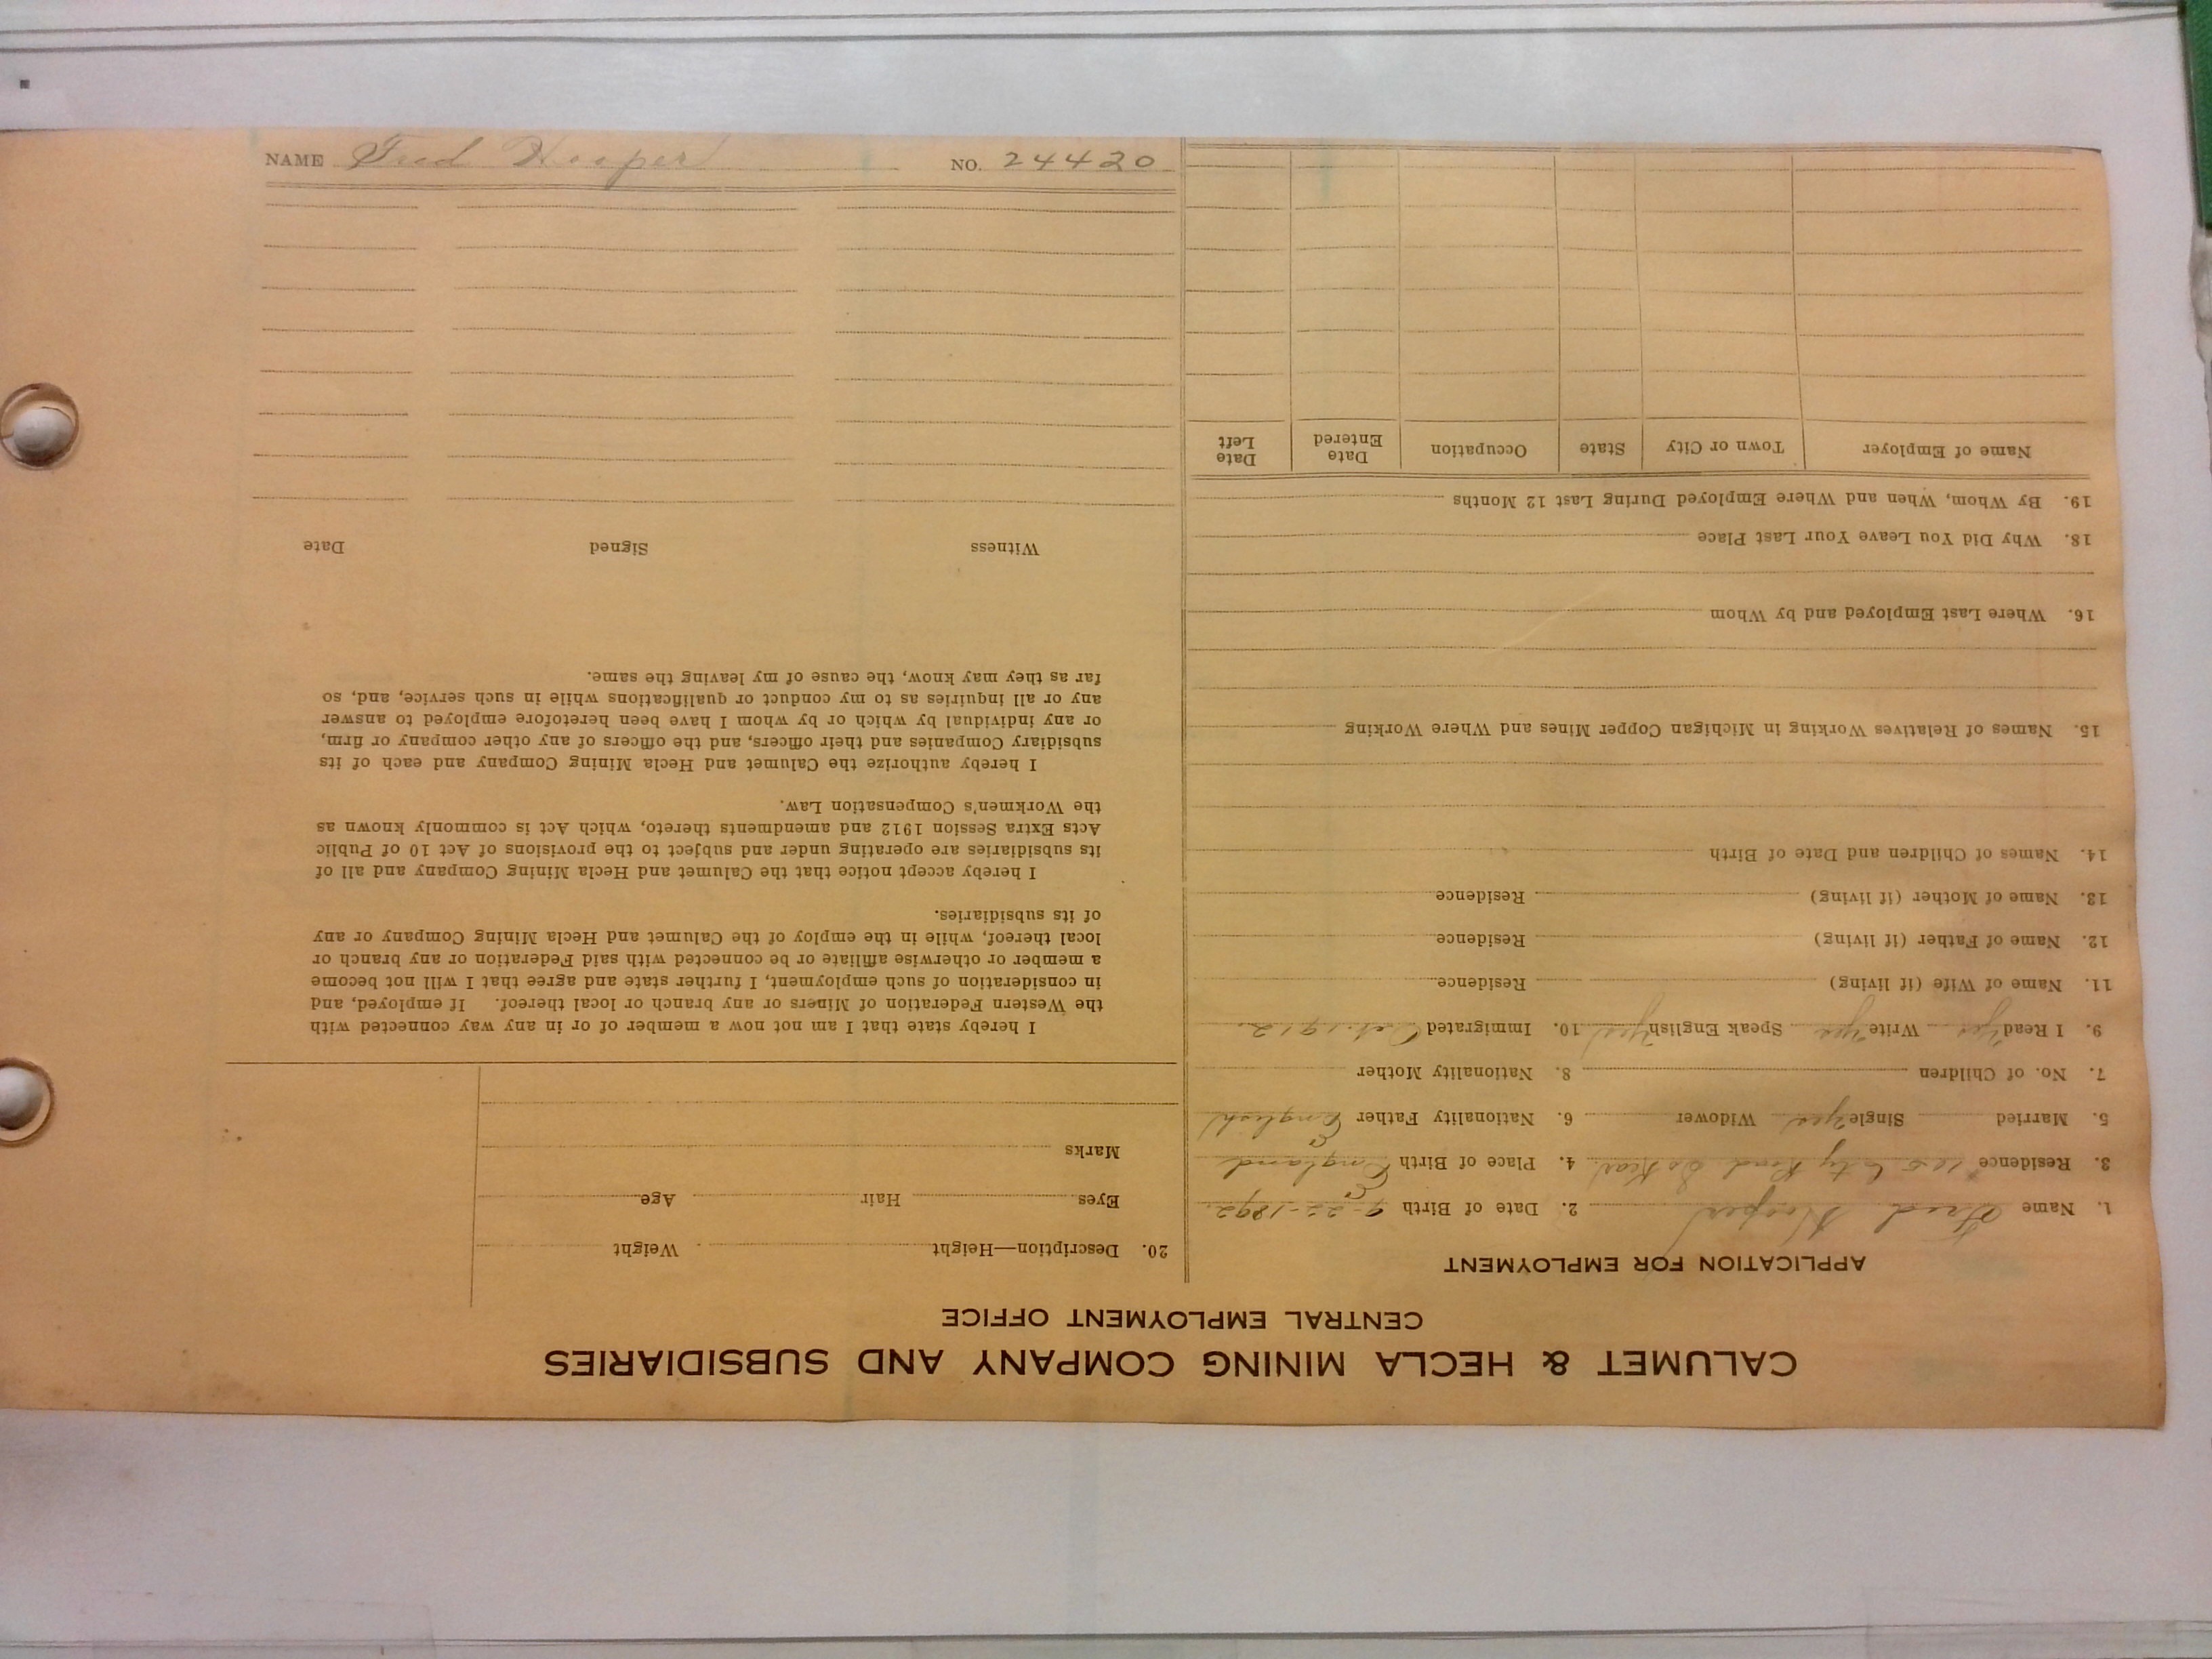 CALUMET & HECLA MINING COMPANY AND SUBSIDIARIES
CENTRAL EMPLOYMENT OFFICE
APPLICATION FOR EMPLOYMENT
1. Name Fred Hooper 2. Date of Birth 9-22-1892.
3. Residence City Road So Kear. 4. Place of Birth England
5. Married Single Yes Widower 6. Nationality Father English
7. No. of Children 8. Nationality Mother
9. I Read Yes Write Yes Speak English Yes 10. Immigrated Oct. 1912.
11. Name of Wife (if living) Residence
12. Name of Father (if living) Residence
13. Name of Mother (if living) Residence
14. Names of Children and Date of Birth
15. Names of Relatives Working in Michigan Copper Mines and Where Working
16. Where Last Employed and by Whom
18. Why Did You Leave Your Last Place
19. By Whom, When and Where Employed During Last 12 Months
Name of Employer Town or City State Occupation Date Entered Date Left
20. Description—Height Weight
Eyes Hair Age
Marks
I hereby state that I am not now a member of or in any way connected with
the Western Federation of Miners or any branch or local thereof. If employed, and
in consideration of such employment, I further state and agree that I will not become
a member or otherwise affiliate or be connected with said Federation or any branch or
local thereof, while in the employ of the Calumet and Hecla Mining Company or any
of its subsidiaries.
I hereby accept notice that the Calumet and Hecla Mining Company and all of
its subsidiaries are operating under and subject to the provisions of Act 10 of Public
Acts Extra Session 1912 and amendments thereto, which Act is commonly known as
the Workmen's Compensation Law.
I hereby authorize the Calumet and Hecla Mining Company and each of its
subsidiary Companies and their officers, and the officers of any other company or firm,
or any individual by which or by whom I have been heretofore employed to answer
any or all inquiries as to my conduct or qualifications while in such service, and, so
far as they may know, the cause of my leaving the same.
Witness Signed Date
NAME Fred Hooper NO. 24420